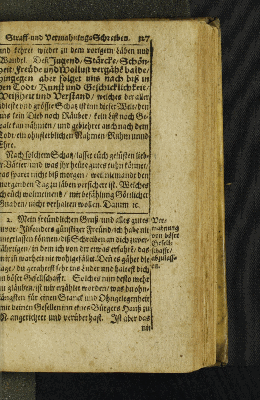 Straff- und Vermahnungs-Schreiben. 127
und kehret wieder zu dem vorigem Läben und
Wandel. Den Jugend/ Stärcke/ Schön-
heit/ Freude und Wollust vergähet balde/
hingegen aber folget uns nach biß in
den Tode/ Kunst und Geschicklichkeit/
Weißheit und Verstand/ welches der aller-
edelste und grösste Schatz ist auf dieser Welt/ den
uns kein Dieb noch Räuber/ kein böß noch Ge-
walt kan nähmen/ und gebiehret auch nach dem
Tode ein unsterblichen Nahmen Ruhm und
Ehre.
Nach solchem Schatz/ lasset euch gelüsten lieb-
er Vätter und was ihr heute gutes tuhn könnet/
das sparet nicht biß morgen/ weil niemand den
morgenden Tag zu läben versichert ist. Welches
ich euch wolmeinend/ mit befählung Göttlicher
Gnaden/ nicht verhalten wollen. Datum ꝛc.
2. Mein freundlichen Gruß und alles gutes
zuvor. Insonders günstiger Freund/ ich habe nit
unterlassen können/ diß Schreiben an dich zuver-
färtigen/ in dem ich von dir etwas erfahre/ das
mir in warheit nie wohlgefället. Den es gähet die
sage/ du gerahtest sehr ins änder und haltest dich
zu böser Gesellschafft. Solches nun desto mehr
zu gläuben/ ist mir erzählt worden/ was du ohn-
längsten für einen Stanck und Ohngelegenheit
mit deinen Gesellen in eines Bürgers Hauß zu
N. angerichtet und verübet hast. Ist aber das
nun
Ver-
mahnung
von böser
Gesell-
schafft/
abzulass-
en.